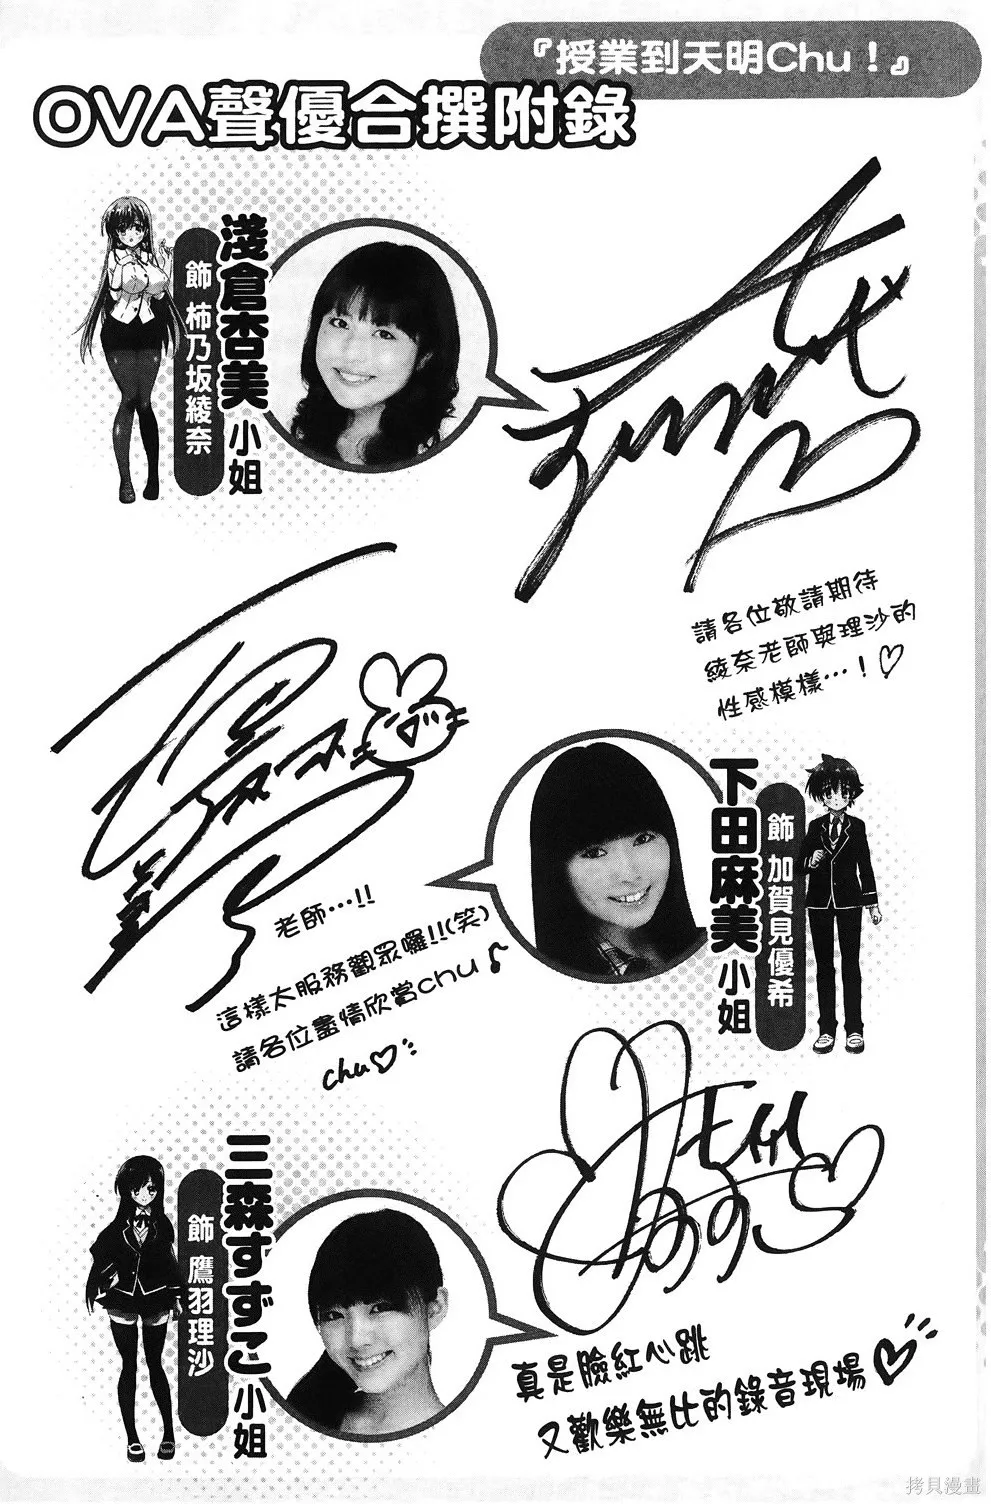 『授業到天明Chu！』
OVA聲優合撰附錄
淺倉杏美小姐
飾 柿乃坂綾奈
請各位敬請期待
綾奈老師與理沙的
性感模樣…！♡
下田麻美小姐
飾 加賀見優希
老師…!!
這樣太服務觀眾囉!!(笑)
請各位盡情欣賞chu♪
chu♡
三森すずこ小姐
飾 鷹羽理沙
真是臉紅心跳
又歡樂無比的錄音現場♡
拷貝漫畫